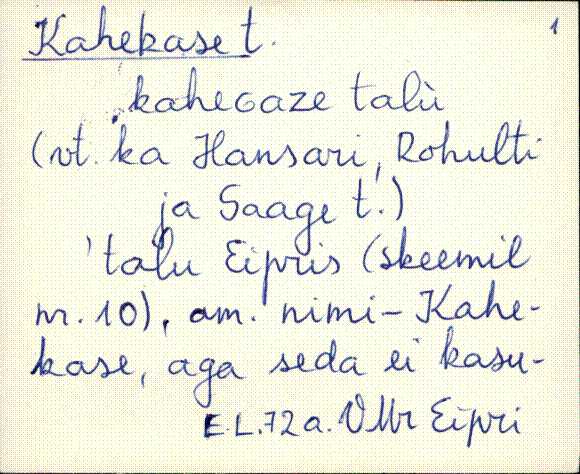 Kahekase t. 1
kahecaze talù
(vt. ka Hansari, Rohulti
ja Saage t.)
'talu Eipris (skeemil
nr. 10), am. nimi - Kahe-
kase, aga seda ei kasu-
E.L.72a. VMr Eipri